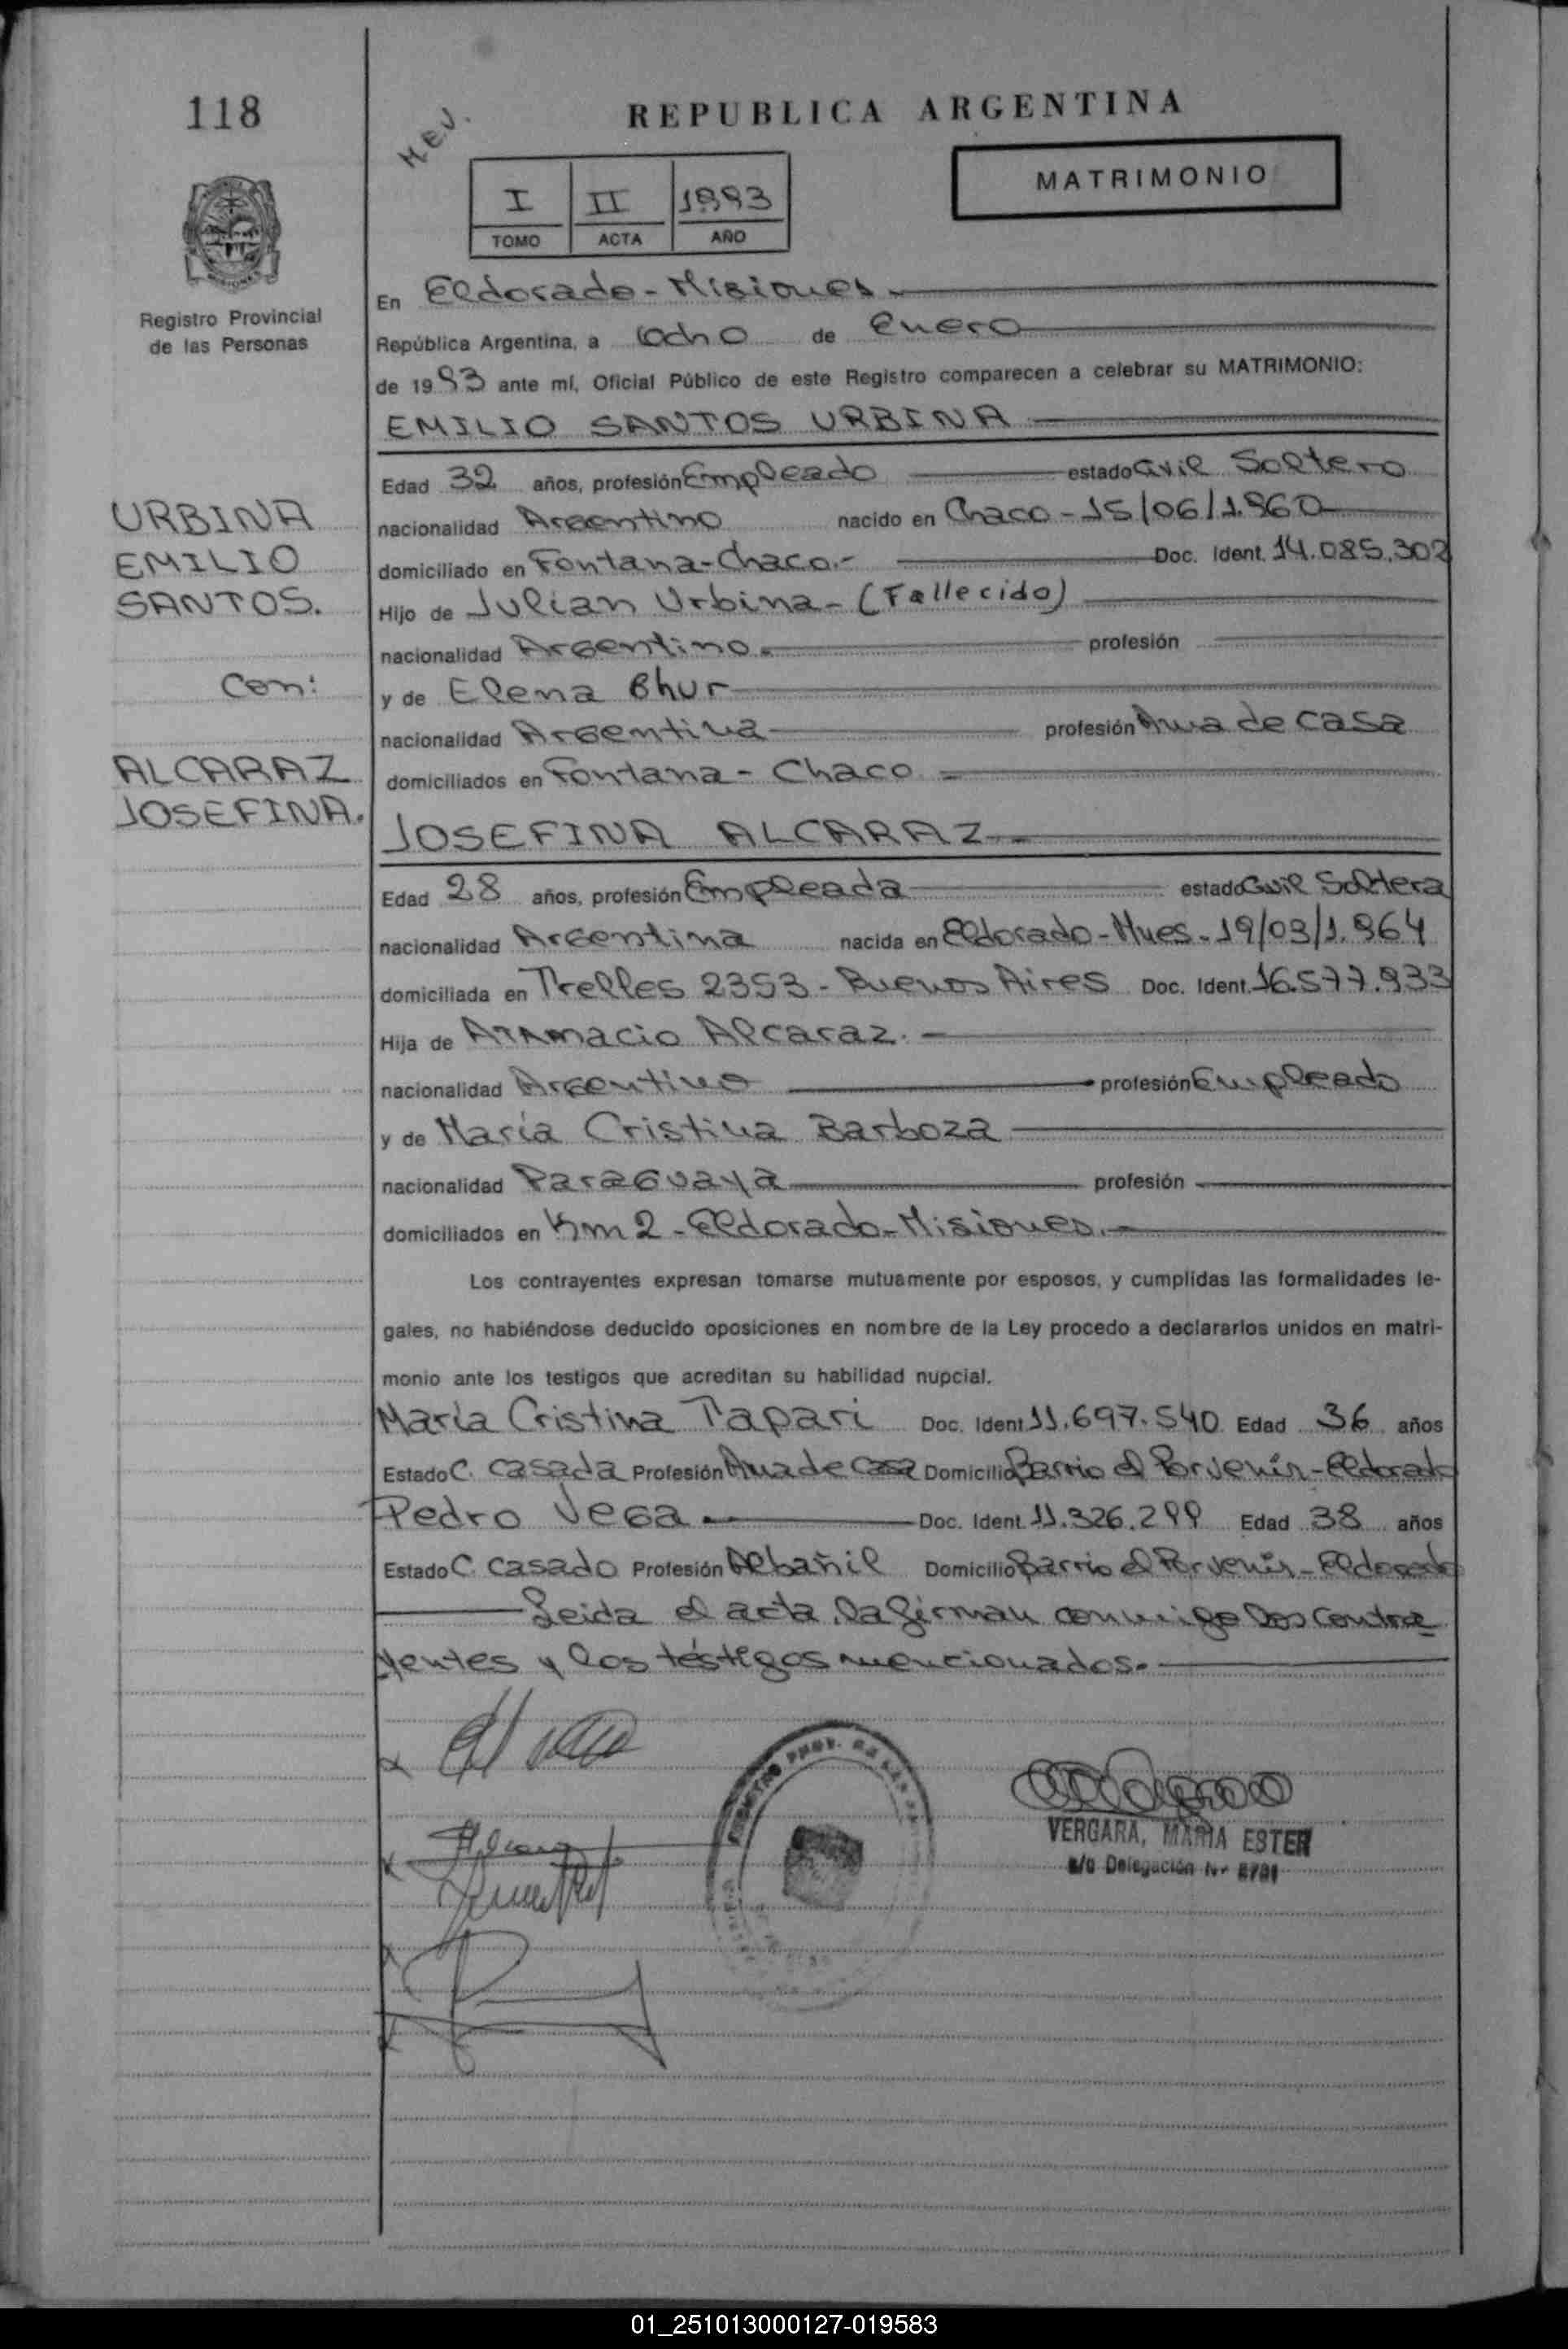 118
M.E.J.
REPUBLICA ARGENTINA
MATRIMONIO
I II 1993
TOMO ACTA AÑO
Registro Provincial
de las Personas
En Eldorado - Misiones
República Argentina, a Ocho de Enero
de 1993 ante mí, Oficial Público de este Registro comparecen a celebrar su MATRIMONIO:
EMILIO SANTOS URBINA
Edad 32 años, profesión Empleado estado Civil Soltero
URBINA
EMILIO
SANTOS.
Con:
ALCARAZ
JOSEFINA.
nacionalidad Argentino nacido en Chaco - 15/06/1.960
domiciliado en Fontana-Chaco.- Doc. Ident. 14.085.302
Hijo de Julian Urbina - (Fallecido)
nacionalidad Argentino. profesión
y de Elena Bhur
nacionalidad Argentina profesión Ama de casa
domiciliados en Fontana - Chaco
JOSEFINA ALCARAZ
Edad 28 años, profesión Empleada estado Civil Soltera
nacionalidad Argentina nacida en Eldorado-Mnes-19/03/1.964
domiciliada en Trelles 2353 - Buenos Aires Doc. Ident. 16.577.933
Hija de Atamacio Alcaraz.
nacionalidad Argentino profesión Empleado
y de María Cristina Barboza
nacionalidad Paraguaya profesión
domiciliados en Km 2 - Eldorado - Misiones.
Los contrayentes expresan tomarse mutuamente por esposos, y cumplidas las formalidades le-
gales, no habiéndose deducido oposiciones en nombre de la Ley procedo a declararlos unidos en matri-
monio ante los testigos que acreditan su habilidad nupcial.
María Cristina Tapari Doc. Ident 11.697.540 Edad 36 años
Estado C. casada Profesión Ama de casa Domicilio Barrio el Porvenir - Eldorado
Pedro Vega Doc. Ident. 11.326.299 Edad 38 años
Estado C. casado Profesión Albañil Domicilio Barrio el Porvenir - Eldorado
Leida el acta, la firman conmigo los contra
yentes y los testigos mencionados.
VERGARA, MARIA ESTER
a/c Delegación
01_251013000127-019583